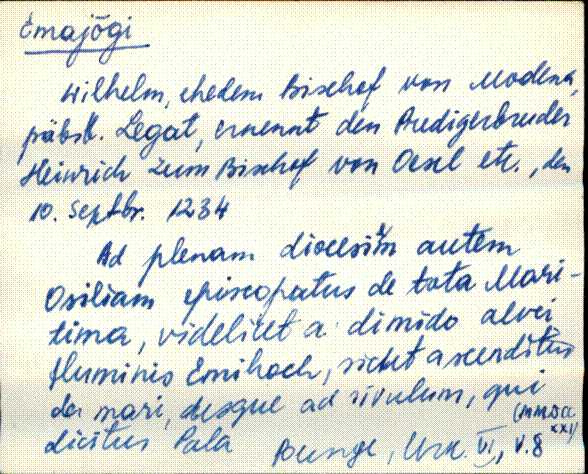 Emajõgi
Wilhelm, ehedem Bischof von Modena,
päbstl. Legat, ernennt den Predigerbruder
Heinrich zum Bischof von Oesel etc., den
10. Septbr. 1234
Ad plenam diocesim autem
Osiliam episcopatus de tota Mari-
tima, videlicet a dimido alvei
fluminis Emihoch, sicut ascenditur
de mari, usque ad rivulum, qui
dicitur Pala
(MMDCC
XXI)
Bunge, Urk. VI, N. 8